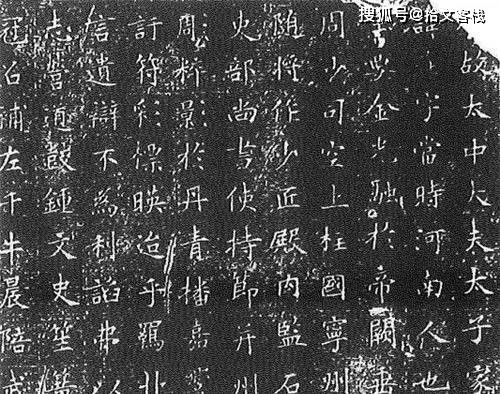 搜狐号@拾文客栈
故太中大夫太子家
字當時河南人也
金光馳於帝闕垂
周少司空上柱國寧州
隨將作少匠殿內監石
部尚書使持節并州
周粹影於丹青播嘉
符彩標暎迨乎羈
信遺辯不為利諂弗以
志嘗鼓鍾文史笙簧
冠召補左千牛晨陪武